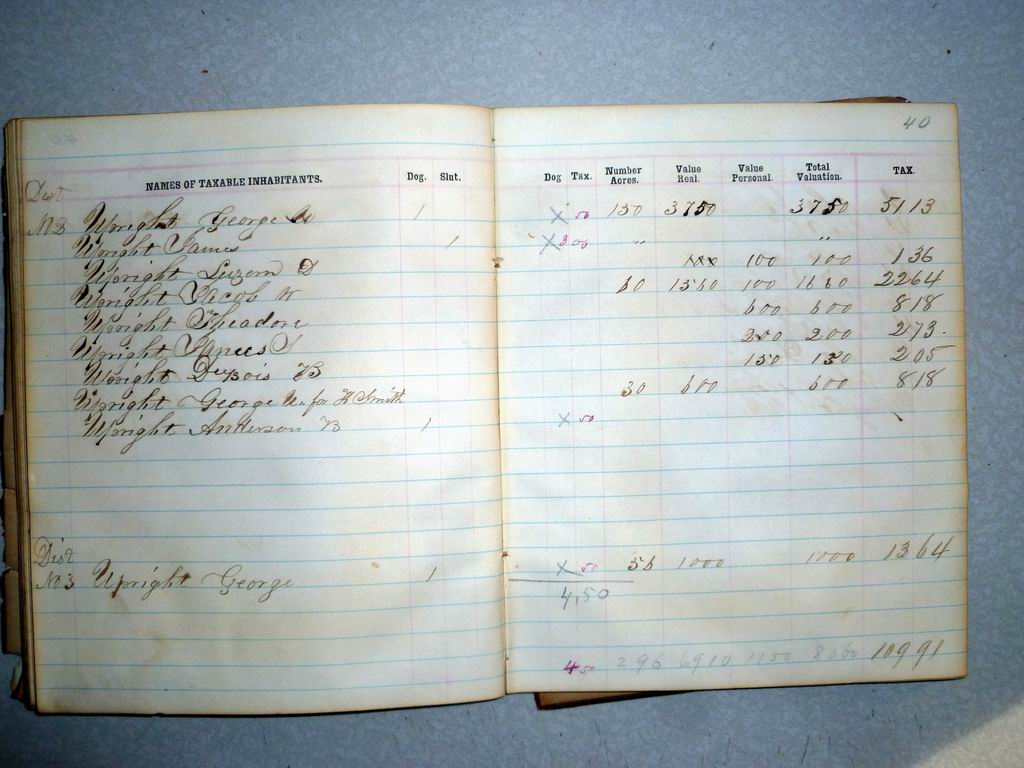 40
NAMES OF TAXABLE INHABITANTS. Dog. Slut. Dog Tax. Number Acres. Value Real. Value Personal. Total Valuation. TAX.
Dist
No 2 Upright George W 1 X 50 150 3750 3750 5113
Upright James 1 X 200 " "
Upright D 100 100 136
Upright Jacob W 60 1560 100 1660 2264
Upright Theadore 600 600 818
Upright S 200 200 273.
Upright B 150 150 205
Upright George W. for H Smith 30 600 600 818
Upright Anderson B 1 X 50
Dist
No 3 Upright George 1 X 50 56 1000 1000 1364
4,50
4 50 296 6910 1150 8060 10991